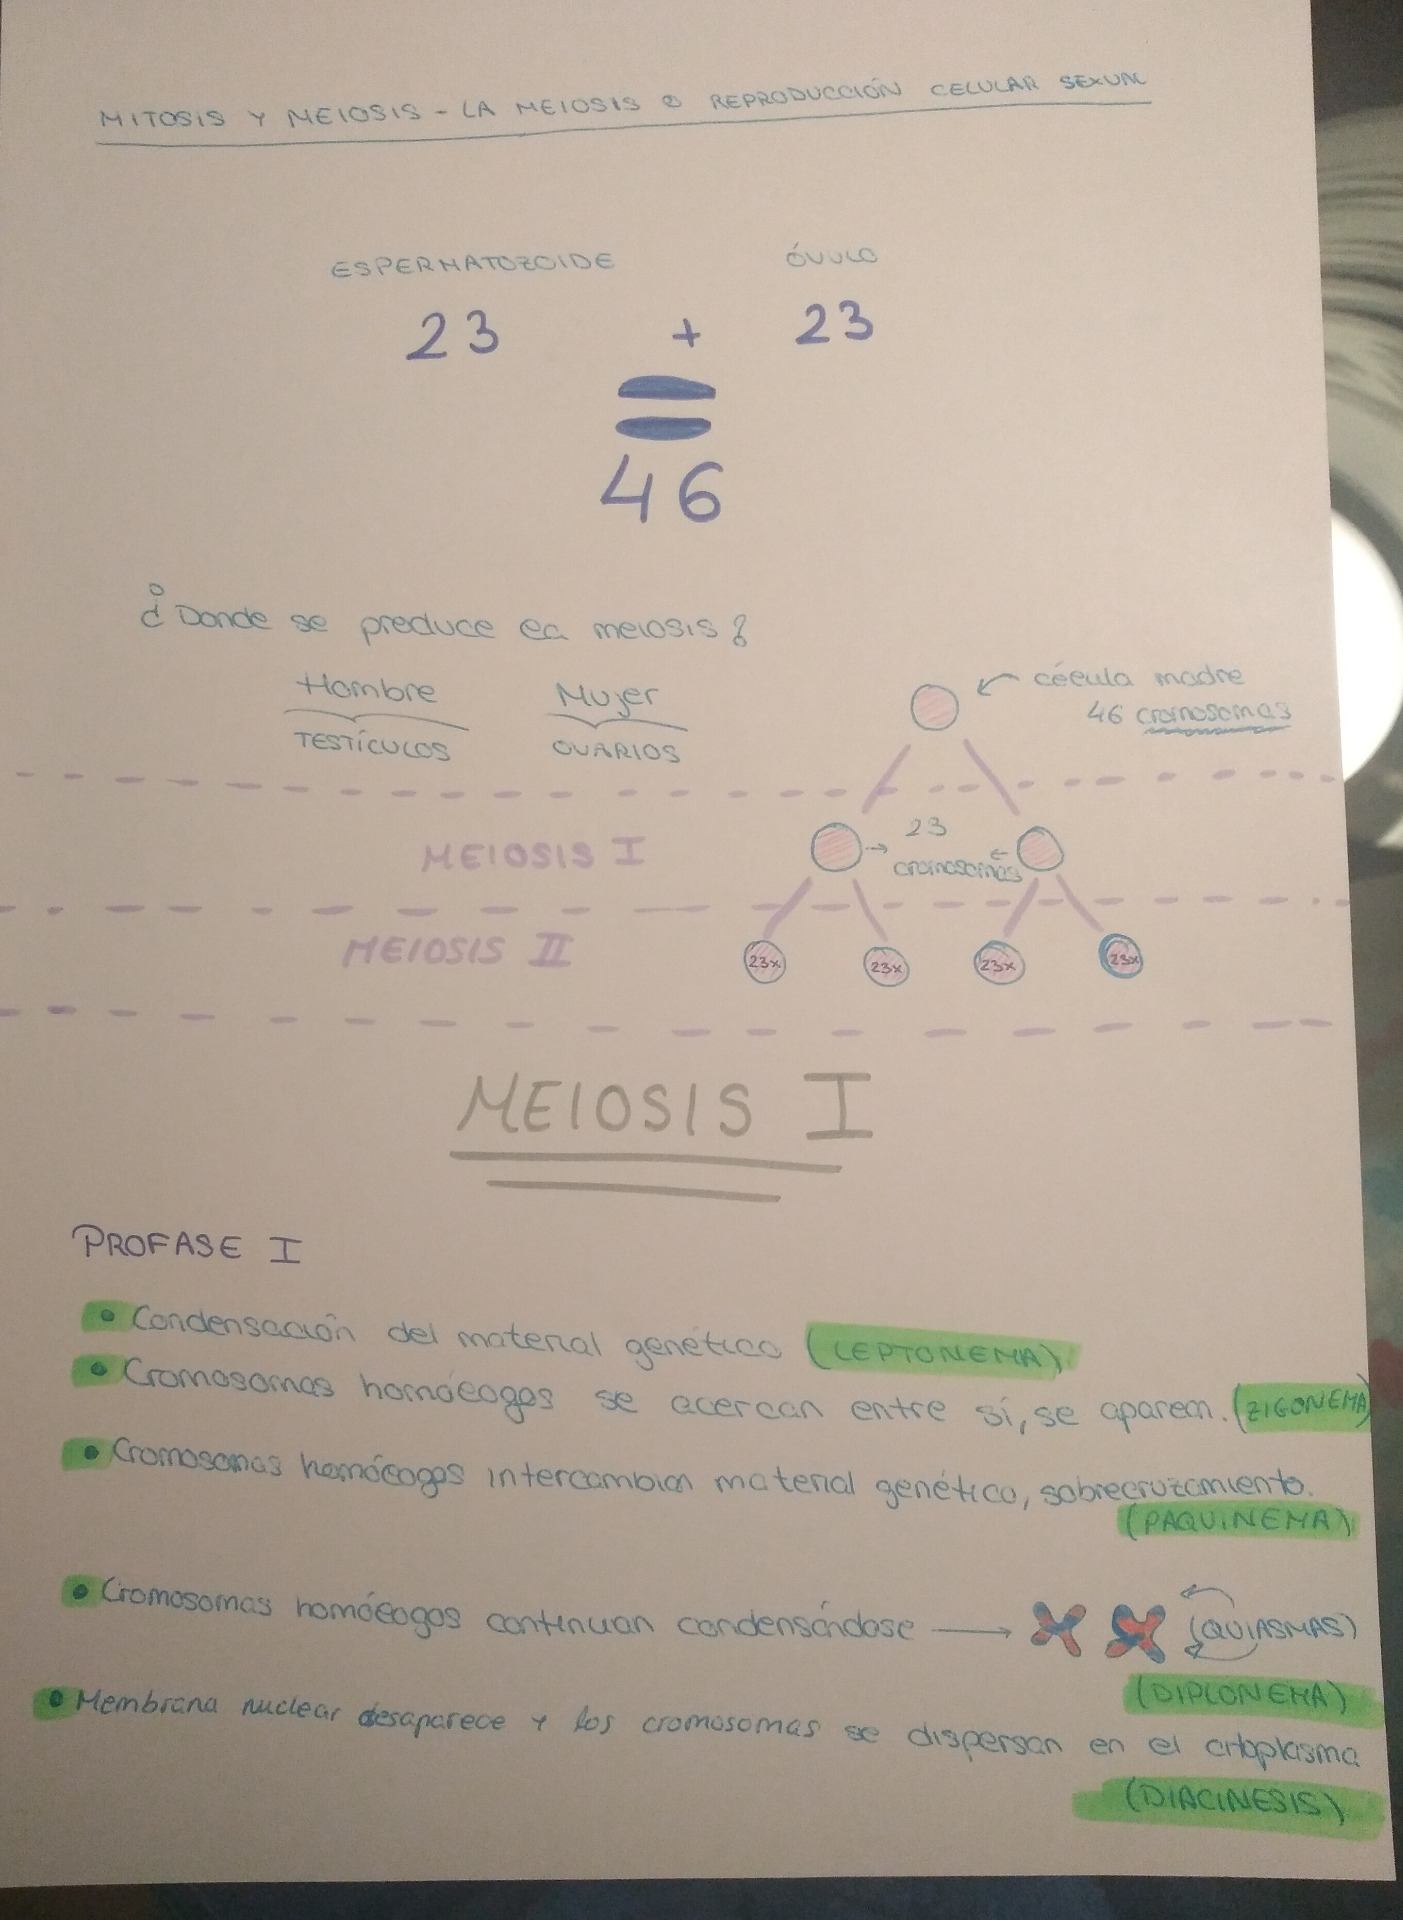 MITOSIS Y MEIOSIS - LA MEIOSIS O REPRODUCCIÓN CELULAR SEXUAL
ESPERMATOZOIDE ÓVULO
23 + 23
=
46
¿Donde se produce la meiosis?
Hombre Mujer
TESTÍCULOS OVARIOS
célula madre
46 cromosomas
MEIOSIS I
23
cromosomas
MEIOSIS II
23x 23x 23x 23x
MEIOSIS I
PROFASE I
• Condensación del material genético (LEPTONEMA)
• Cromosomas homólogos se acercan entre sí, se aparean. (ZIGONEMA)
• Cromosomas homólogos intercambian material genético, sobrecruzamiento.
(PAQUINEMA)
• Cromosomas homólogos continuan condensándose → (QUIASMAS)
(DIPLONEMA)
• Membrana nuclear desaparece y los cromosomas se dispersan en el citoplasma
(DIACINESIS)